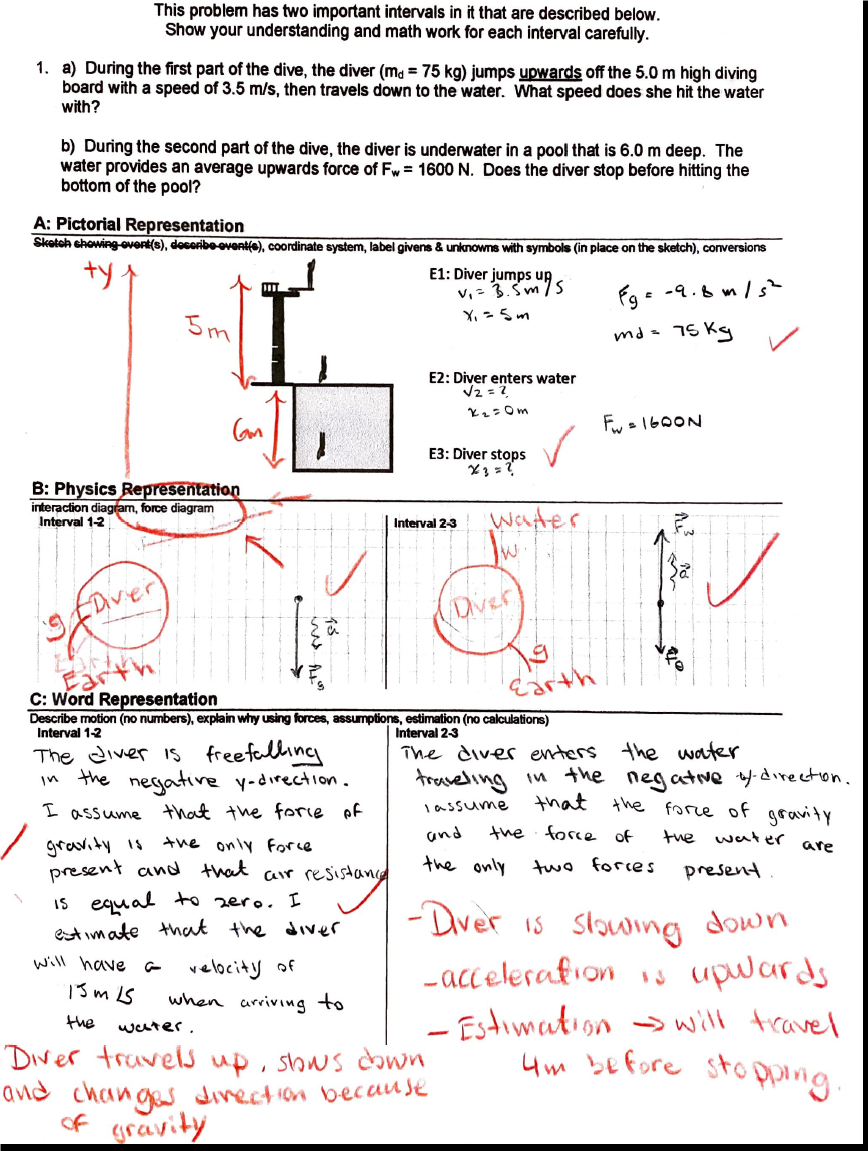 This problem has two important intervals in it that are described below.
Show your understanding and math work for each interval carefully.
1. a) During the first part of the dive, the diver (md = 75 kg) jumps upwards off the 5.0 m high diving
board with a speed of 3.5 m/s, then travels down to the water. What speed does she hit the water
with?
b) During the second part of the dive, the diver is underwater in a pool that is 6.0 m deep. The
water provides an average upwards force of Fw = 1600 N. Does the diver stop before hitting the
bottom of the pool?
A: Pictorial Representation
Sketch showing event(s), describe event(s), coordinate system, label givens & unknowns with symbols (in place on the sketch), conversions
+y
5m
6m
E1: Diver jumps up
v₁ = 3.5m/s
x₁ = 5m
Fg = -9.8 m/s²
md = 75 Kg
E2: Diver enters water
v2 = ?
x2 = 0m
Fw = 1600N
E3: Diver stops
x3 = ?
B: Physics Representation
interaction diagram, force diagram
Interval 1-2
g
Diver
Earth
Earth
a
Fg
Interval 2-3
Water
w
Diver
g
Earth
Fw
a
C: Word Representation
Describe motion (no numbers), explain why using forces, assumptions, estimation (no calculations)
Interval 1-2
The diver is freefalling
in the negative y-direction.
I assume that the force of
gravity is the only force
present and that air resistance
is equal to zero. I
estimate that the diver
will have a velocity of
15m/s when arriving to
the water.
Diver travels up, slows down
and changes direction because
of gravity
Interval 2-3
The diver enters the water
traveling in the negative y-direction.
I assume that the force of gravity
and the force of the water are
the only two forces present.
- Diver is slowing down
- acceleration is upwards
- Estimation → will travel
4m before stopping.